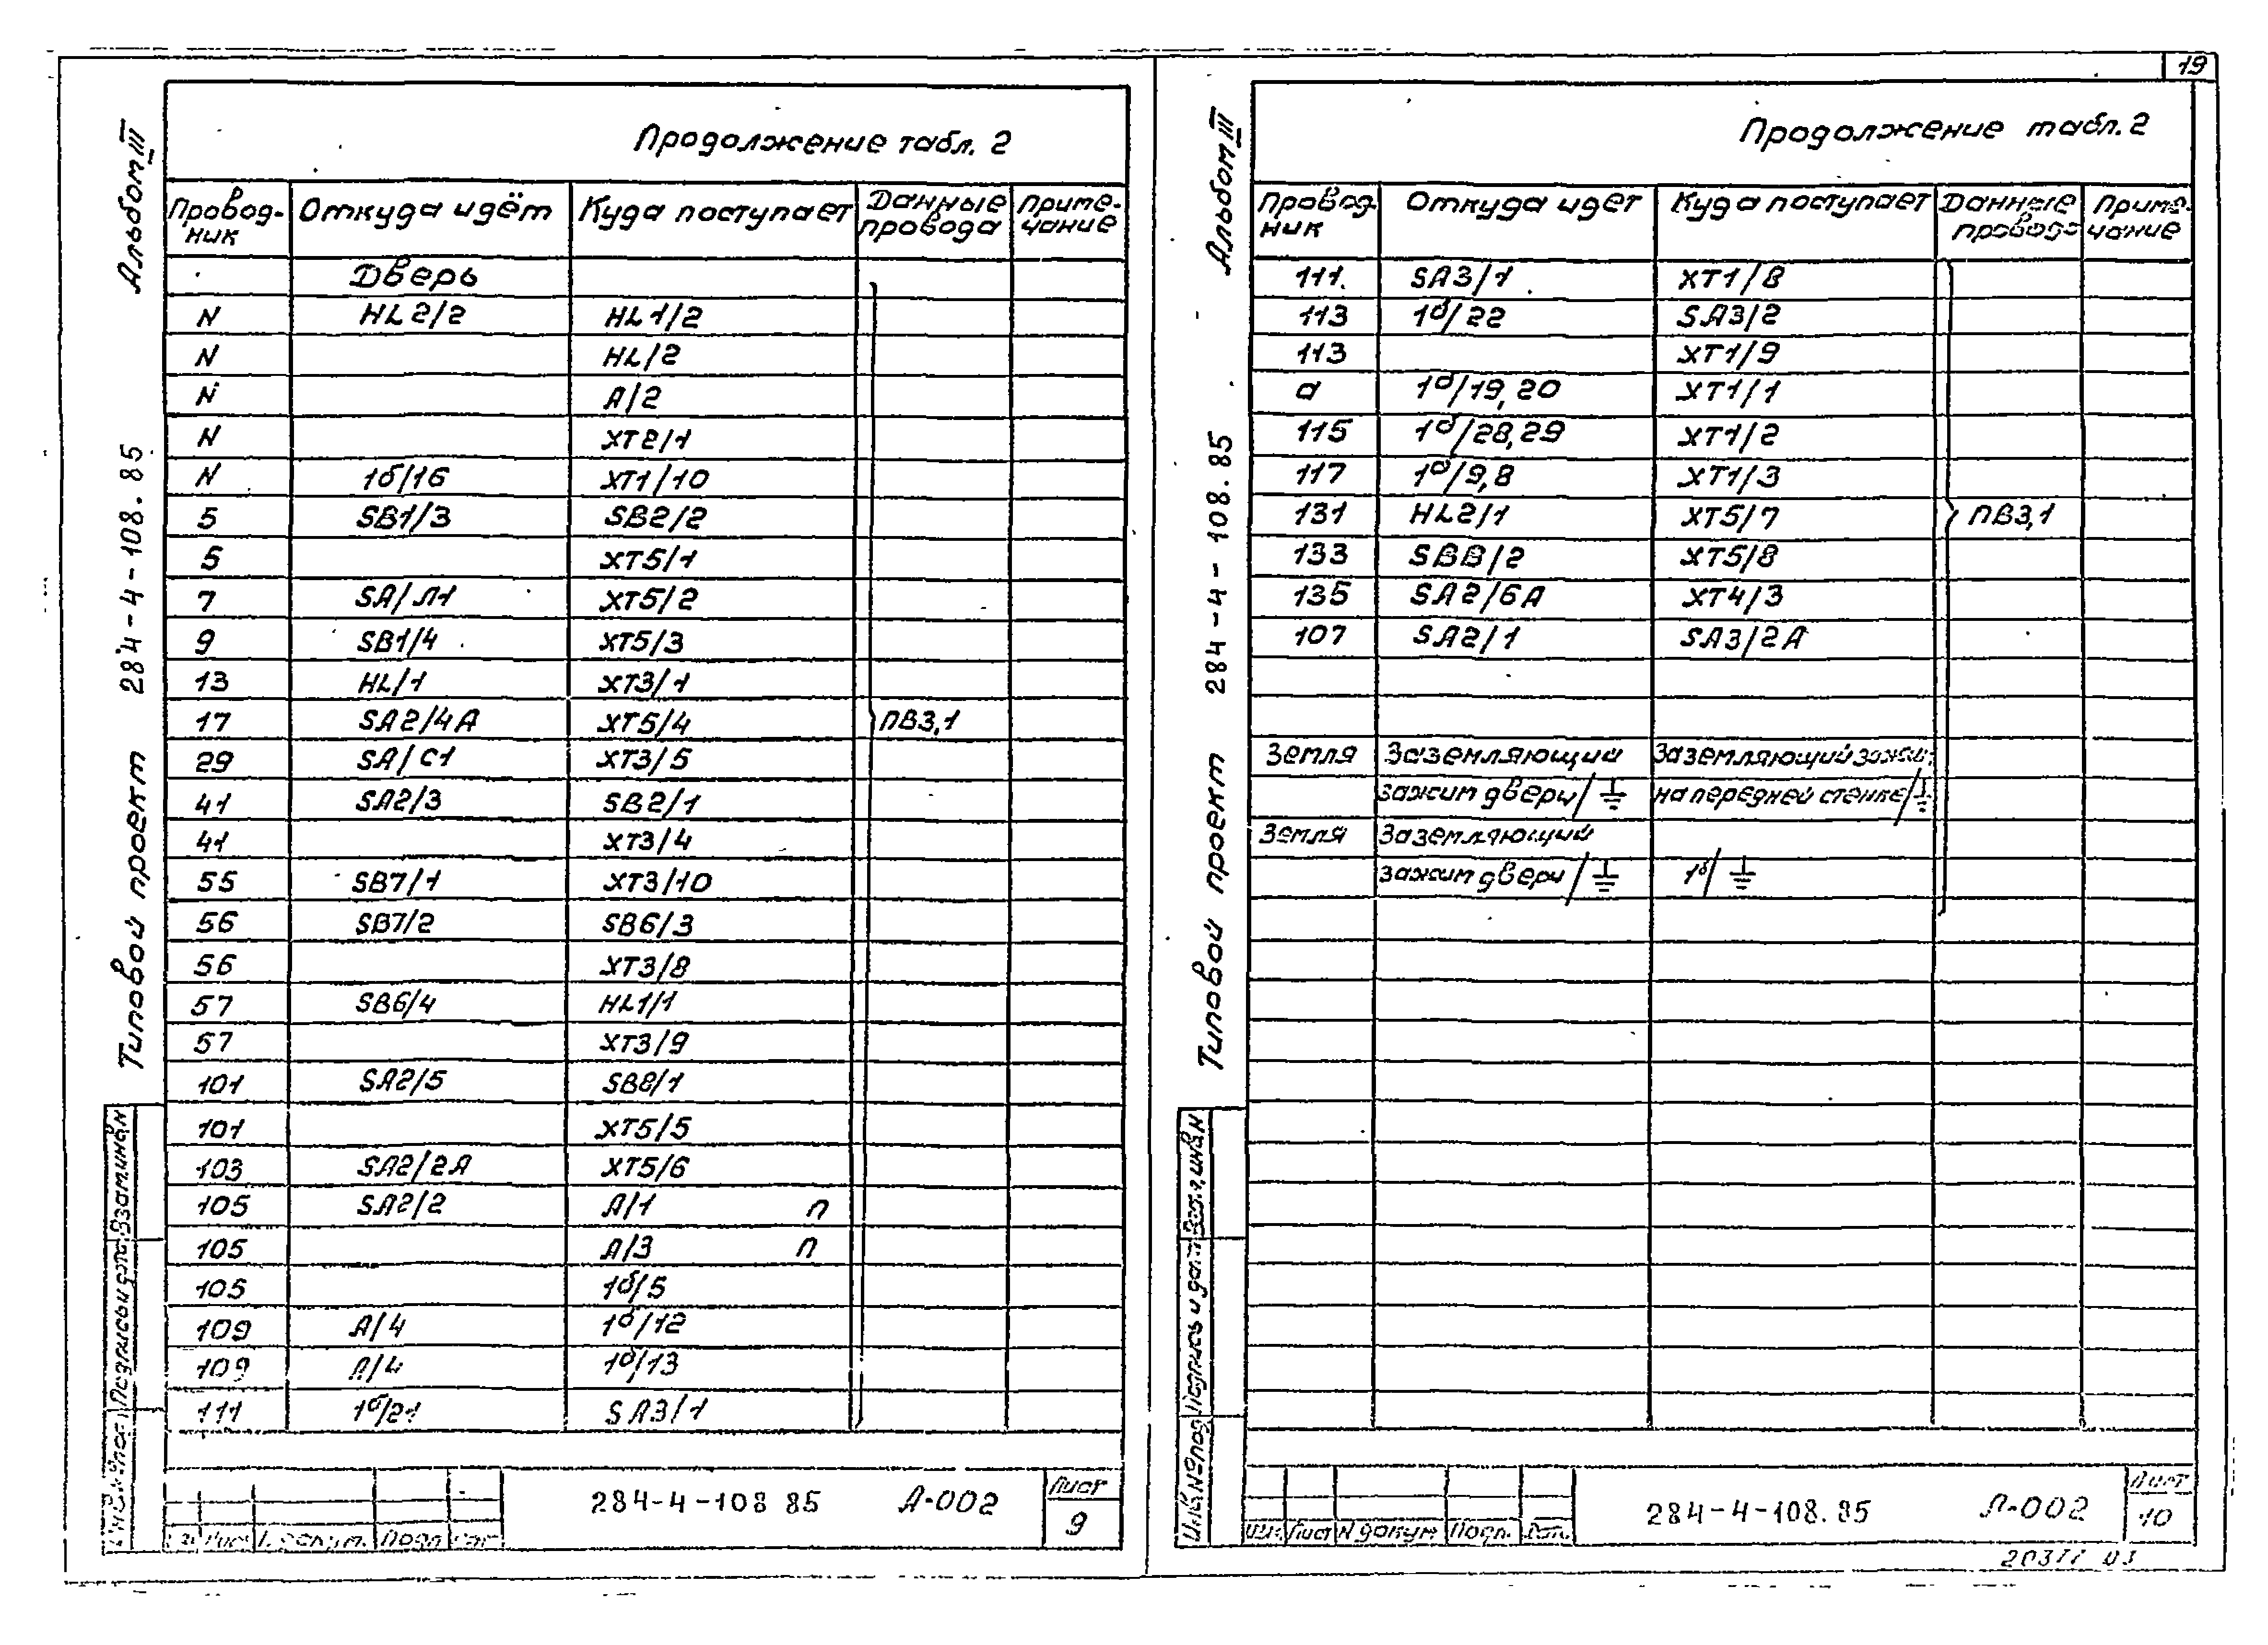 19
Альбом III
Типовой проект 284-4-108.85
Продолжение табл. 2
Провод-ник | Откуда идёт | Куда поступает | Данные провода | Приме-чание
Дверь
N | HL2/2 | HL1/2
N | | HL/2
N | | A/2
N | | XT2/1
N | 1б/16 | XT1/10
5 | SB1/3 | SB2/2
5 | | XT5/1
7 | SA/Л1 | XT5/2
9 | SB1/4 | XT5/3
13 | HL/1 | XT3/1
17 | SA2/4A | XT5/4 | ПВ3,1
29 | SA/C1 | XT3/5
41 | SA2/3 | SB2/1
41 | | XT3/4
55 | SB7/1 | XT3/10
56 | SB7/2 | SB6/3
56 | | XT3/8
57 | SB6/4 | HL1/1
57 | | XT3/9
101 | SA2/5 | SB8/1
101 | | XT5/5
103 | SA2/2A | XT5/6
105 | SA2/2 | A/1 п
105 | | A/3 п
105 | | 1б/5
109 | A/4 | 1б/12
109 | A/4 | 1б/13
111 | 1б/21 | SA3/1
Взам.инв.N
Подпись и дата
284-4-108 85 А-002
Лист
9
Альбом III
Типовой проект 284-4-108.85
Продолжение табл. 2
Провод-ник | Откуда идет | Куда поступает | Данные провода | Приме-чание
111 | SA3/1 | XT1/8
113 | 1б/22 | SA3/2
113 | | XT1/9
а | 1б/19,20 | XT1/1
115 | 1б/28,29 | XT1/2
117 | 1б/9,8 | XT1/3
131 | HL2/1 | XT5/7 | ПВ3,1
133 | SB8/2 | XT5/8
135 | SA2/6A | XT4/3
107 | SA2/1 | SA3/2A
Земля | Заземляющий | Заземляющий зажим
зажим двери/⏚ | на передней стенке/⏚
Земля | Заземляющий
зажим двери/⏚ | 1б/⏚
Взам.инв.N
Подпись и дата
Инв.N подл
Лист N докум Подп. Дата
284-4-108.85 А-002
Лист
10